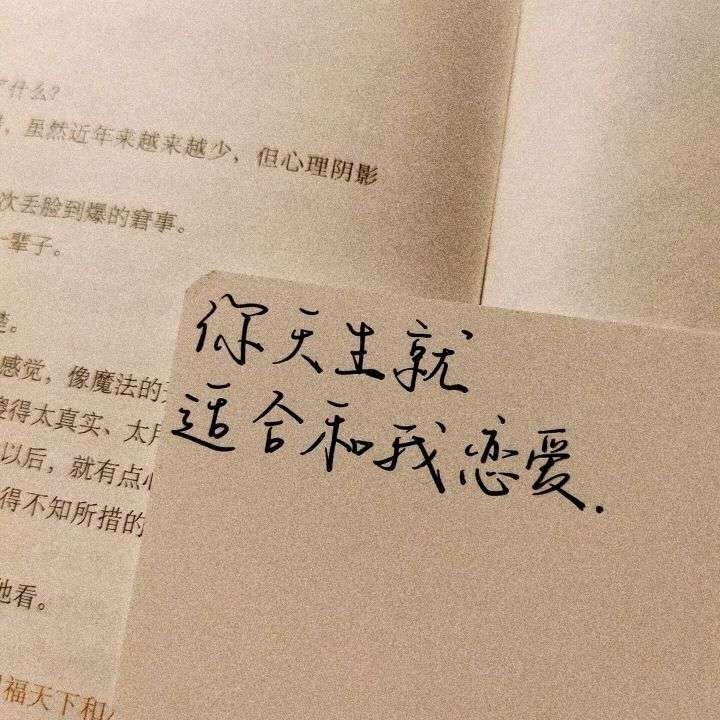 了什么?
，虽然近年来越来越少，但心理阴影
次丢脸到爆的窘事。
一辈子。
楚。
感觉，像魔法的
得太真实、太
以后，就有点
得不知所措的
他看。
福天下和
你天生就
适合和我恋爱.